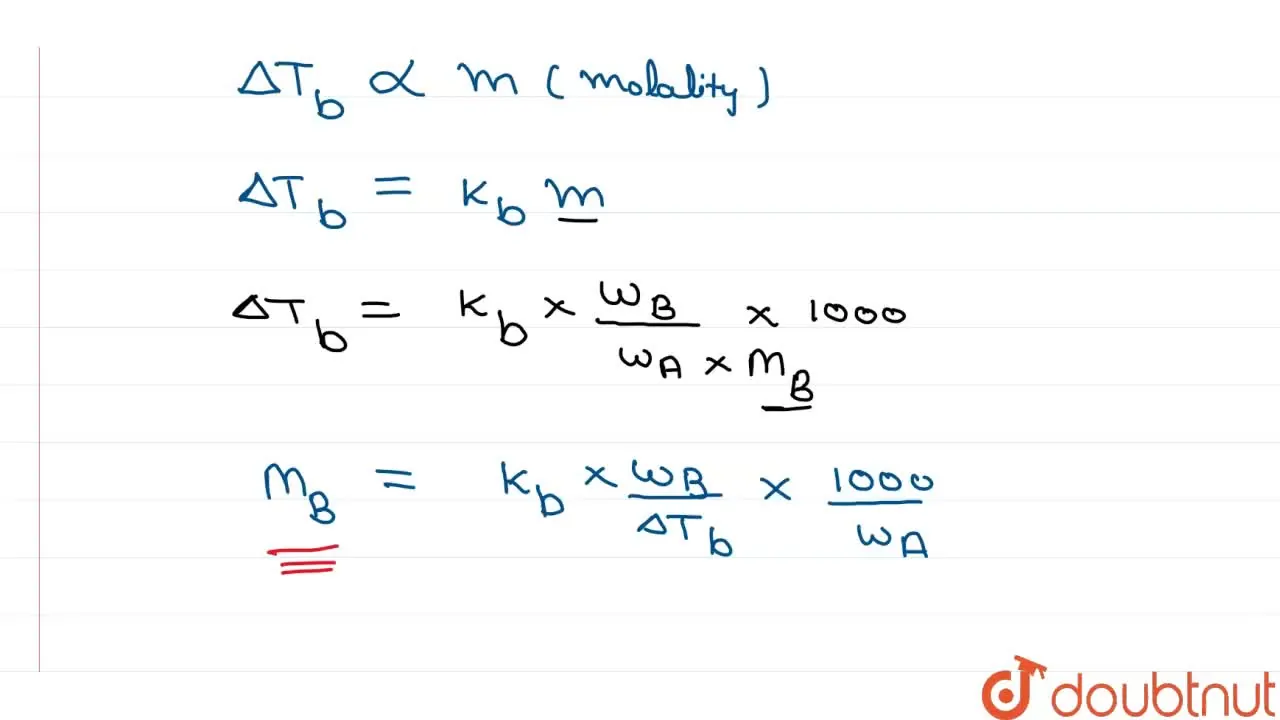 ΔT_b ∝ m (molality)
ΔT_b = K_b m
ΔT_b = K_b × W_B / (W_A × M_B) × 1000
M_B = K_b × W_B / ΔT_b × 1000 / W_A
doubtnut